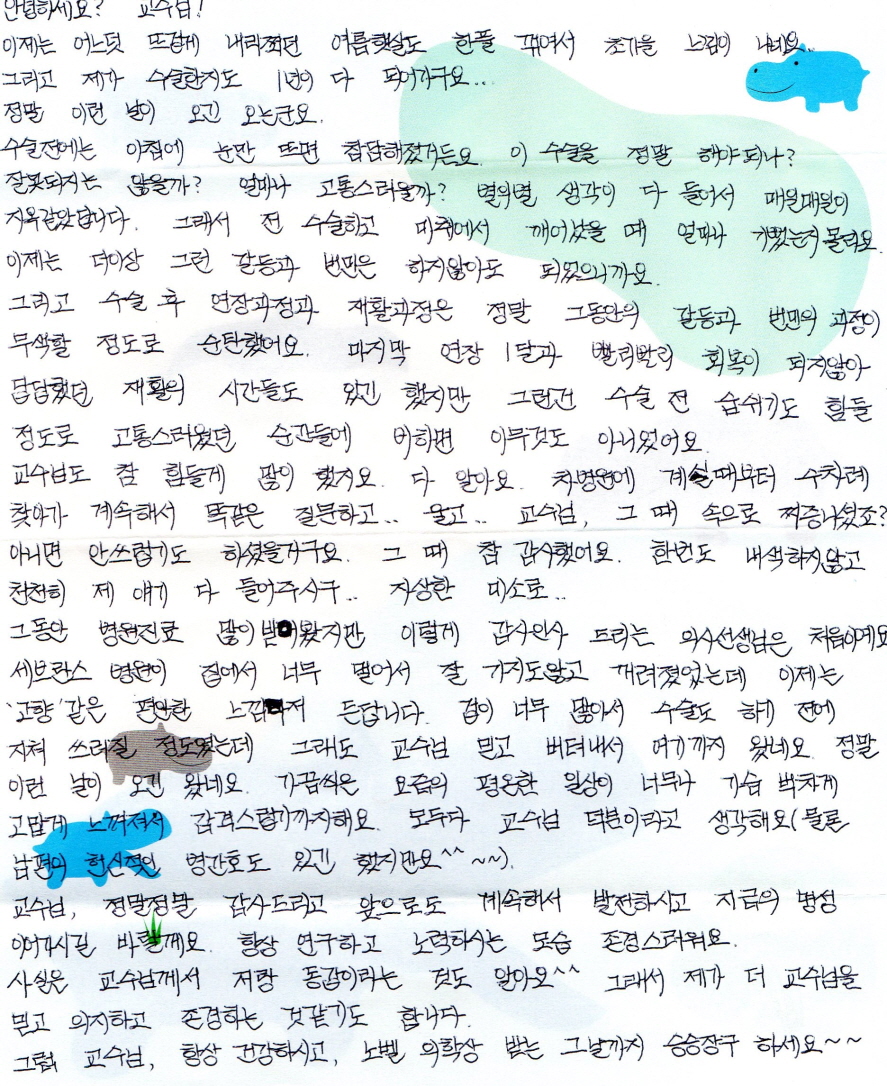 안녕하세요? 교수님!
이제는 어느덧 뜨겁게 내리쬐던 여름햇살도 한풀 꺾여서 초가을 느낌이 나네요..
그리고 제가 수술한지도 1년이 다 되어가구요...
정말 이런 날이 오긴 오는군요.
수술전에는 아침에 눈만 뜨면 참담해졌거든요. 이 수술을 정말 해야되나?
잘못되지는 않을까? 얼마나 고통스러울까? 별의별 생각이 다 들어서 매일매일이
지옥같았답니다. 그래서 전 수술하고 마취에서 깨어났을 때 얼마나 기뻤는지 몰라요.
이제는 더이상 그런 갈등과 번민은 하지않아도 되었으니까요.
그리고 수술 후 연장과정과 재활과정은 정말 그동안의 갈등과 번민의 과정이
무색할 정도로 순탄했어요. 마지막 연장 1달과 빨리빨리 회복이 되지않아
답답했던 재활의 시간들도 있긴 했지만 그런건 수술 전 숨쉬기도 힘들
정도로 고통스러웠던 순간들에 비하면 아무것도 아니었어요.
교수님도 참 힘들게 많이 했지요. 다 알아요. 차병원에 계실때부터 수차례
찾아가 계속해서 똑같은 질문하고.. 울고.. 교수님, 그 때 속으로 짜증나셨죠?
아니면 안쓰럽기도 하셨을거구요. 그 때 참 감사했어요. 한번도 내색하지않고
천천히 제 얘기 다 들어주시구.. 자상한 미소로..
그동안 병원진료 많이 받아왔지만 이렇게 감사인사 드리는 의사선생님은 처음이예요
세브란스 병원이 집에서 너무 멀어서 잘 가지도않고 꺼려졌었는데 이제는
'고향'같은 편안한 느낌마저 든답니다. 겁이 너무 많아서 수술도 하기 전에
지쳐 쓰러질 정도였는데 그래도 교수님 믿고 버텨내서 여기까지 왔네요. 정말
이런 날이 오긴 왔네요. 가끔씩은 요즘의 평온한 일상이 너무나 가슴 벅차게
고맙게 느껴져서 감격스럽기까지해요. 모두다 교수님 덕분이라고 생각해요(물론
남편의 헌신적인 병간호도 있긴 했지만요^^ ~~).
교수님, 정말정말 감사드리고 앞으로도 계속해서 발전하시고 지금의 명성
이어가시길 바랄께요. 항상 연구하고 노력하시는 모습 존경스러워요.
사실은 교수님께서 저랑 동갑이라는 것도 알아요^^ 그래서 제가 더 교수님을
믿고 의지하고 존경하는 것같기도 합니다.
그럼 교수님, 항상 건강하시고, 노벨 의학상 받는 그날까지 승승장구 하세요~~